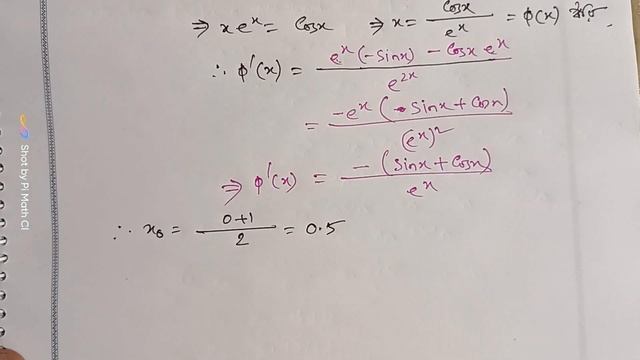 ⇒ x eˣ = Cosx ⇒ x = Cosx / eˣ = φ(x)
∴ φ'(x) = eˣ(-Sinx) - Cosx eˣ / e²ˣ
= -eˣ (Sinx + Cosx) / (eˣ)²
⇒ φ'(x) = - (Sinx + Cosx) / eˣ
∴ x₀ = 0+1 / 2 = 0.5
Shot by Pi Math Cl